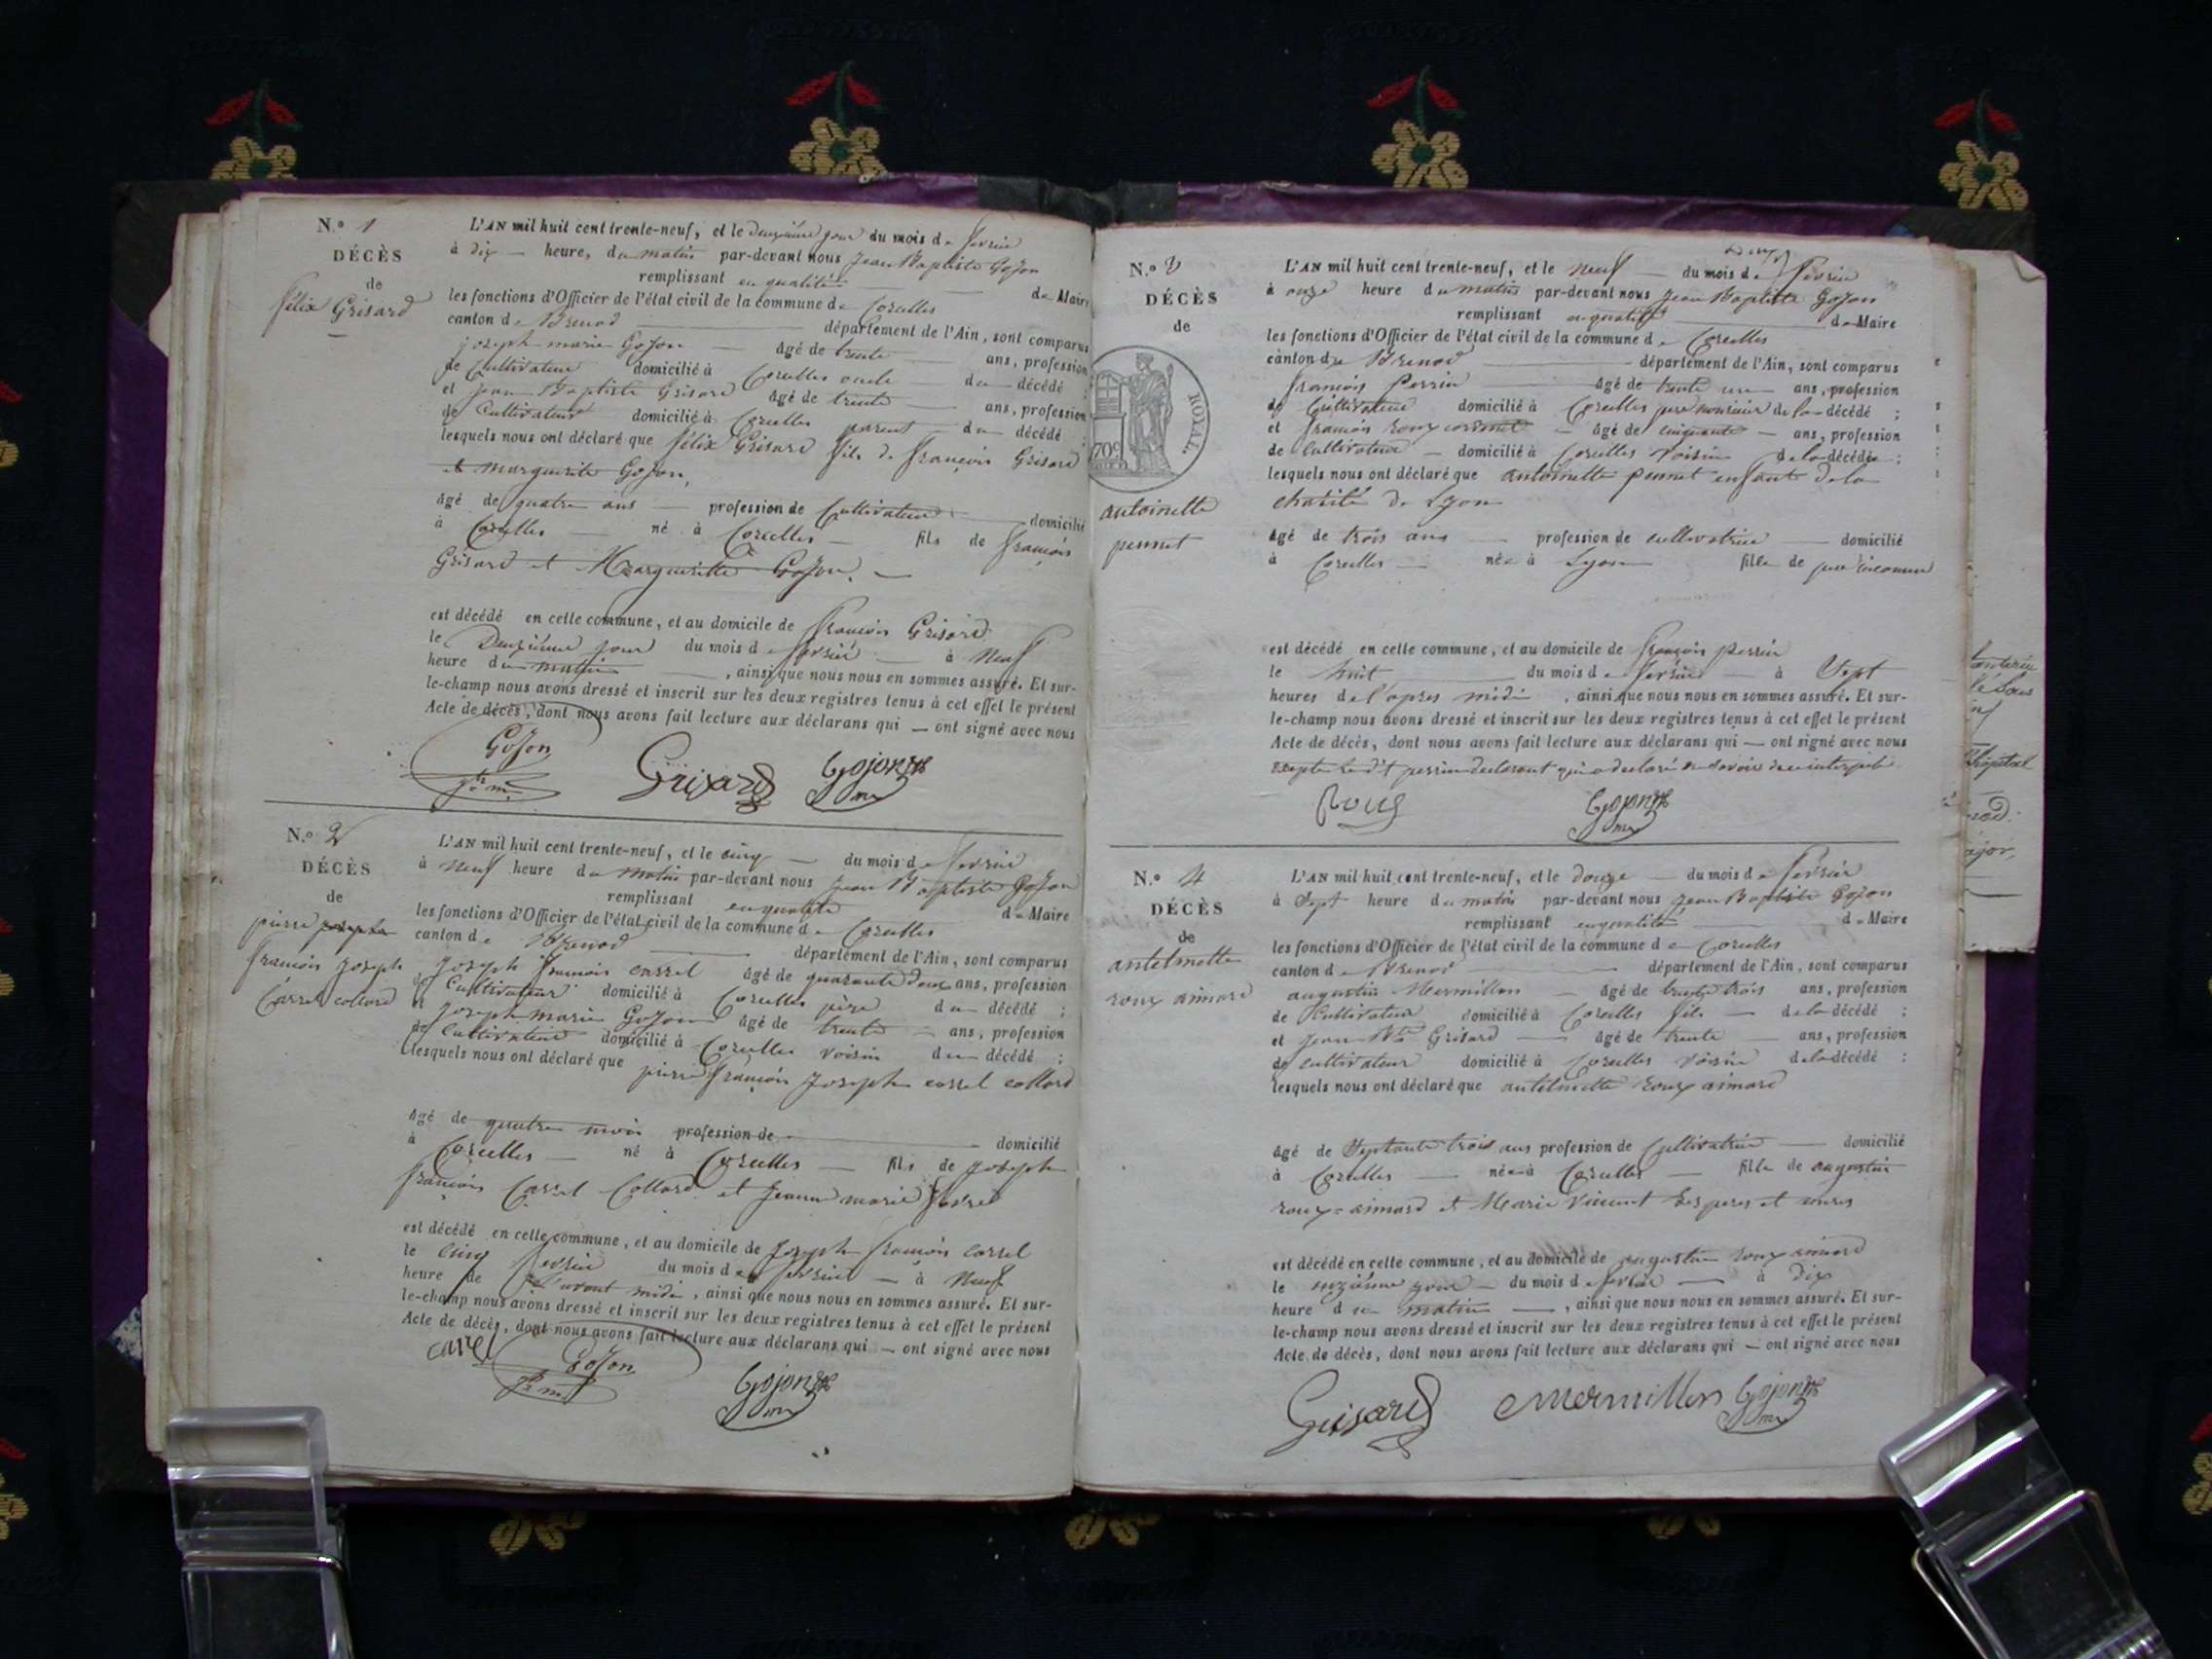 N.º 1
DÉCÈS
de
félix Grisard
L'AN mil huit cent trente-neuf, et le deuxième jour du mois de février
à dix — heure, du matin par-devant nous Jean Baptiste Gojon
remplissant en qualité de Maire
les fonctions d'Officier de l'état civil de la commune de Corcelles
canton de Brenod département de l'Ain, sont comparus
joseph marie Gojon âgé de trente ans, profession
de Cultivateur domicilié à Corcelles oncle du décédé ;
et jean Baptiste Grisard âgé de trente ans, profession
de Cultivateur domicilié à Corcelles parent du décédé ;
lesquels nous ont déclaré que félix Grisard fils de françois Grisard
et marguerite Gojon,
âgé de quatre ans profession de Cultivateur domicilié
à Corcelles né à Corcelles fils de françois
Grisard et Margueritte Gojon.
est décédé en cette commune, et au domicile de françois Grisard
le Deuxième jour du mois de février à Neuf
heure du matin, ainsi que nous nous en sommes assuré. Et sur-
le-champ nous avons dressé et inscrit sur les deux registres tenus à cet effet le présent
Acte de décès, dont nous avons fait lecture aux déclarans qui — ont signé avec nous
Gojon
Grisard
Gojon
N.º 2
DÉCÈS
de
pierre joseph
françois joseph
Carrel collard
L'AN mil huit cent trente-neuf, et le cinq du mois de février
à Neuf heure du matin par-devant nous Jean Baptiste Gojon
remplissant en qualité de Maire
les fonctions d'Officier de l'état civil de la commune de Corcelles
canton de Brenod département de l'Ain, sont comparus
joseph françois carrel âgé de quarante deux ans, profession
de Cultivateur domicilié à Corcelles père du décédé ;
et joseph marie Gojon âgé de trente ans, profession
de Cultivateur domicilié à Corcelles voisin du décédé ;
lesquels nous ont déclaré que pierre françois joseph carrel collard
âgé de quatre mois profession de domicilié
à Corcelles né à Corcelles fils de joseph
françois Carrel Collard et jeanne marie
est décédé en cette commune, et au domicile de joseph françois carrel
le cinq février du mois de février à Neuf
heure de l'avant midi, ainsi que nous nous en sommes assuré. Et sur-
le-champ nous avons dressé et inscrit sur les deux registres tenus à cet effet le présent
Acte de décès, dont nous avons fait lecture aux déclarans qui — ont signé avec nous
carrel
Gojon
Gojon
N.º 3
DÉCÈS
de
ROYAL
70c
antoinette
pernet
L'AN mil huit cent trente-neuf, et le neuf du mois de février
à onze heure du matin par-devant nous Jean Baptiste Gojon
remplissant en qualité de Maire
les fonctions d'Officier de l'état civil de la commune de Corcelles
canton de Brenod département de l'Ain, sont comparus
françois Perrin âgé de trente un ans, profession
de Cultivateur domicilié à Corcelles père nourricier de la décédé ;
et françois roux âgé de cinquante ans, profession
de Cultivateur domicilié à Corcelles voisin de la décédée ;
lesquels nous ont déclaré que antoinette pernet enfant de la
charité de Lyon
âgé de trois ans profession de cultivatrice domicilié
à Corcelles née à Lyon fille de père inconnu
est décédé en cette commune, et au domicile de françois perrin
le huit du mois de février à Sept
heures de l'apres midi, ainsi que nous nous en sommes assuré. Et sur-
le-champ nous avons dressé et inscrit sur les deux registres tenus à cet effet le présent
Acte de décès, dont nous avons fait lecture aux déclarans qui — ont signé avec nous
excepté le dit perrin declarant qui a declaré ne savoir
Roux
Gojon
N.º 4
DÉCÈS
de
antelmette
roux aimard
L'AN mil huit cent trente-neuf, et le douze du mois de février
à Sept heure du matin par-devant nous Jean Baptiste Gojon
remplissant en qualité de Maire
les fonctions d'Officier de l'état civil de la commune de Corcelles
canton de Brenod département de l'Ain, sont comparus
augustin Mermillon âgé de trente trois ans, profession
de Cultivateur domicilié à Corcelles fils de la décédé ;
et jean Bte Grisard âgé de trente ans, profession
de cultivateur domicilié à Corcelles voisin de la décédé ;
lesquels nous ont déclaré que antelmette roux aimard
âgé de Septante trois ans profession de Cultivatrice domicilié
à Corcelles née à Corcelles fille de augustin
roux aimard et Marie Vincent Ses peres et meres
est décédé en cette commune, et au domicile de augustin roux aimard
le onzième jour du mois de février à dix
heure du matin, ainsi que nous nous en sommes assuré. Et sur-
le-champ nous avons dressé et inscrit sur les deux registres tenus à cet effet le présent
Acte de décès, dont nous avons fait lecture aux déclarans qui — ont signé avec nous
Grisard
Mermillon
Gojon